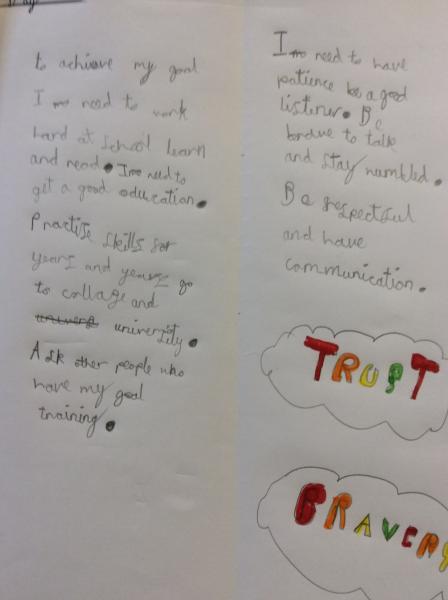 to achieve my goal
I need to work
hard at school learn
and read. I need to
get a good education.
Practise skills for
years and years go
to collage and
univeristily.
Ask other people who
have my goal
training.
I need to have
patience be a good
listener. Be
brave to talk
and stay numbled.
Be respectful
and have
communication.
TRUST
BRAVERY